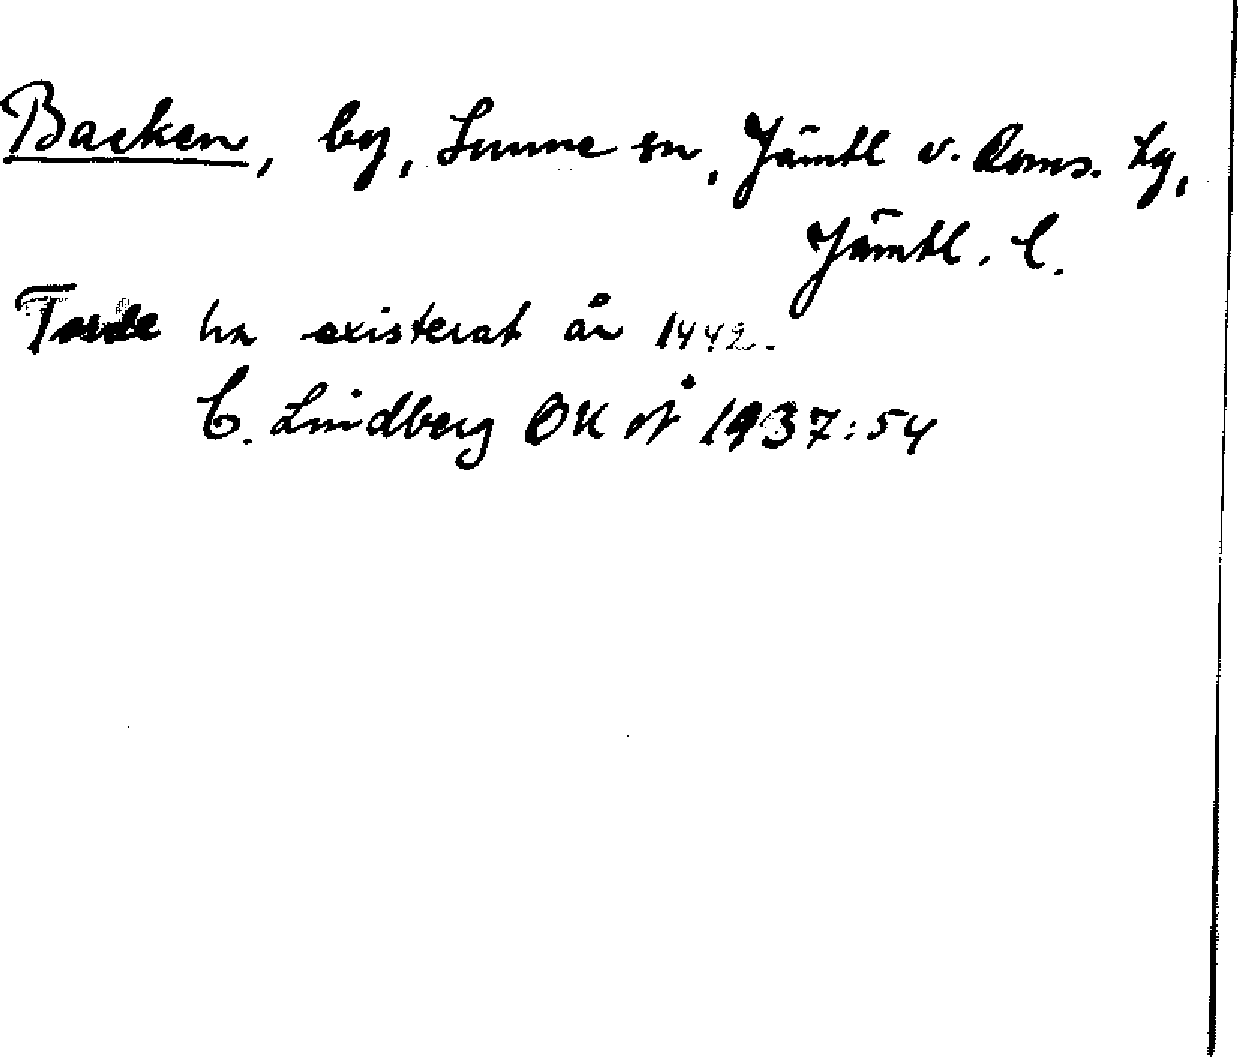 Backen, by, Sunne sn, Jämtl v. Doms. hg,
Jämtl. l.
Torde ha existerat år 1442.
C. Lindberg OK å 1937:54